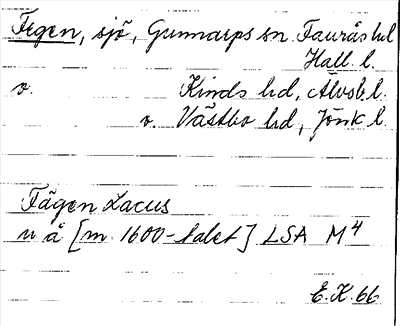 Fegen, sjö, Gunnarps sn. Faurås hd
Hall. l.
o. Kinds hd, Älvsb. l.
o. Västbo hd, Jönk l.
Fägen Lacus
u å [m 1600-talet] LSA M4
E.K. 66